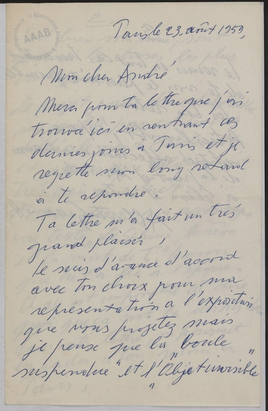 Paris le 23 août 1959,
Mon cher André
Merci pour ta lettre que j'ai
trouvé ici en rentrant ces
derniers jours à Paris et je
regrette mon long retard
à te repondre.
Ta lettre m'a fait un très
grand plaisir,
Je suis d'avance d'accord
avec ton choix pour ma
représentation a l'exposition
que vous projetez mais
je pense que la "boule
suspendue" et l'"Objet invisible"